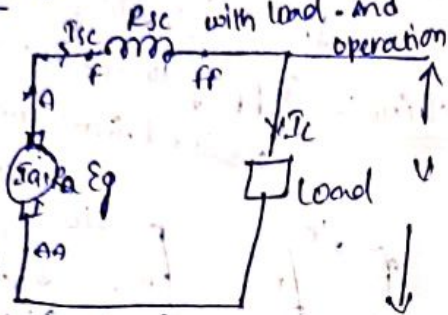 Isc Rsc with load and
operation
F ff
A
Ia, Ra Eg
IL
Load
V
AA